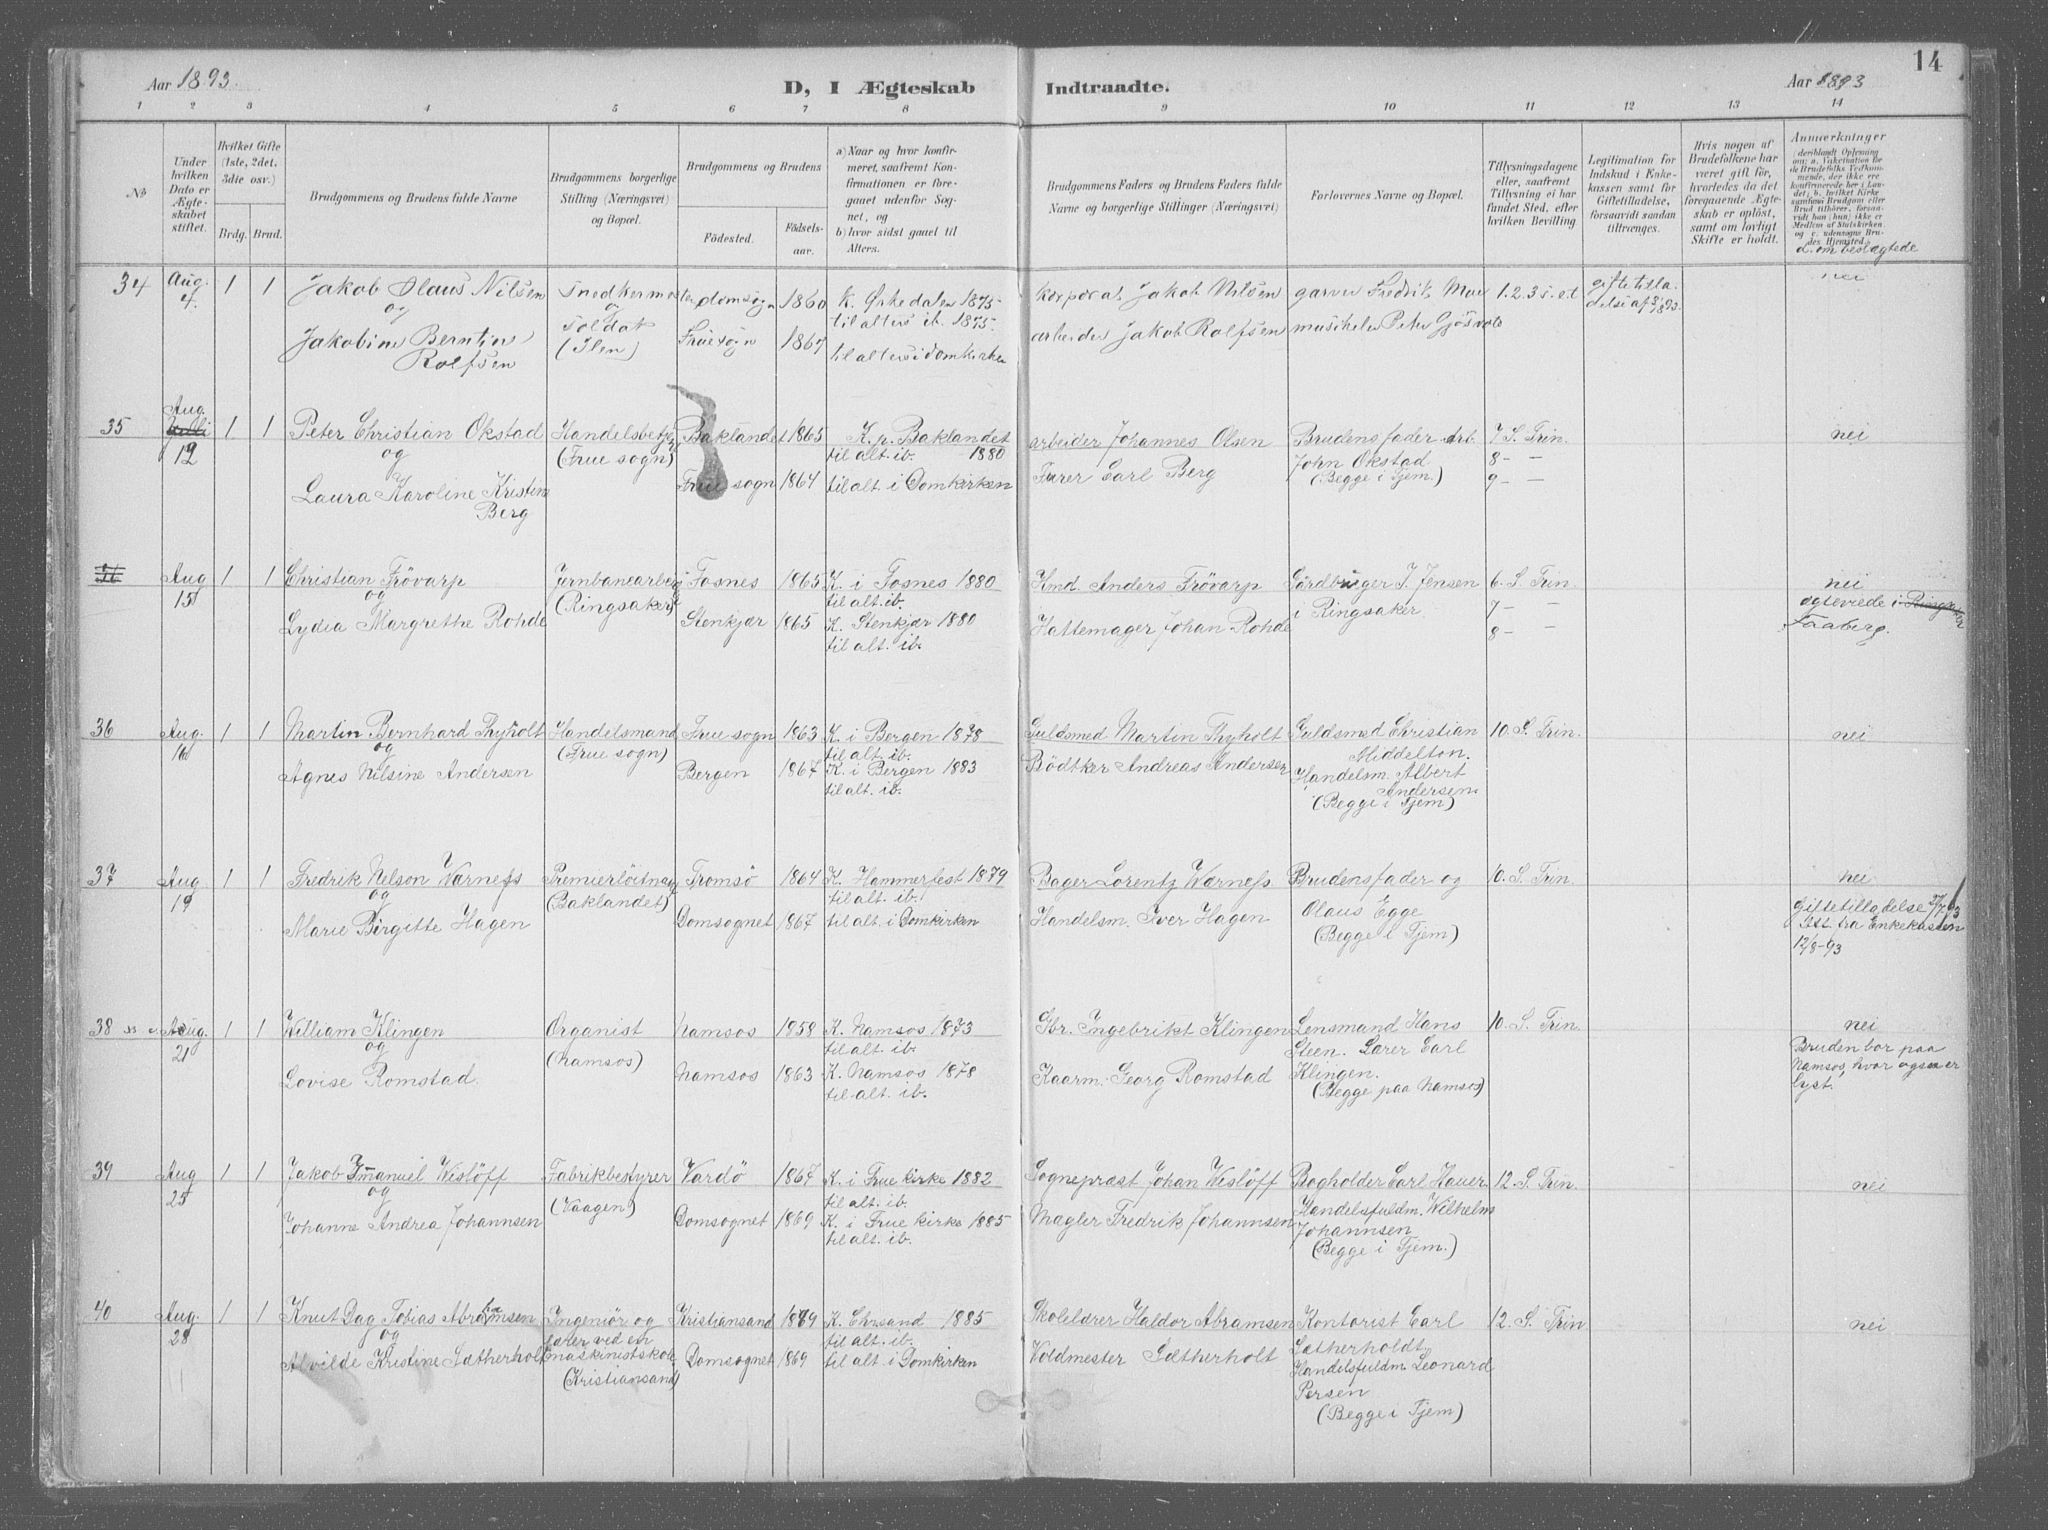 14
Aar 1893.
D, I Ægteskab Indtraadte.
Aar 1893
1 2 3 4 5 6 7 8 9 10 11 12 13 14
No
Under hvilken Dato er Ægteskabet stiftet.
Hvilket Gifte (1ste, 2det, 3die osv.)
Brdg. Brud.
Brudgommens og Brudens fulde Navne
Brudgommens borgerlige Stilling (Næringsvei) og Bopæl.
Brudgommens og Brudens
Fødested.
Fødselsaar.
a) Naar og hvor konfirmeret, saafremt Konfirmationen er foregaaet udenfor Sognet, og
b) hvor sidst gaaet til Alters.
Brudgommens Faders og Brudens Faders fulde Navne og borgerlige Stillinger (Næringsvei)
Forlovernes Navne og Bopæl.
Tillysningsdagene eller, saafremt Tillysning ei har fundet Sted, efter hvilken Bevilling
Legitimation for Indskud i Enkekassen samt for Giftetilladelse, forsaavidt saadan tiltrænges.
Hvis nogen af Brudefolkene har været gift før, hvorledes da det foregaaende Ægteskab er opløst, samt om lovligt Skifte er holdt.
Anmærkninger
(deriblandt Oplysning om: a. Vakcination for de Brudefolks Vedkommende, der ikke ere konfirmerede her i Landet; b. hvilket Kirkesamfund Brudgom eller Brud tilhører, forsaavidt han (hun) ikke er Medlem af Statskirken og c. udensogns Brudes Hjemsted.
d. om beslægtede
34 Aug. 4. 1 1 Jakob Olaus Nilsen
og
Jakobine Berntine Rolfsen
Snedkermester og soldat (Ilen)
domsogn 1860
Fruesogn 1867
K. Ørkedalen 1875
til alters ib. 1875.
til alters i domkirken
korporal Jakob Nilsen
arbeider Jakob Rolfsen
garver Fredrik Moe
musiheler Peter Gjösvold
1. 2. 3 s. e. t
giftetilladelse af 3/8 1893.
nei
35 Aug. 12 1 1 Peter Christian Okstad
og
Laura Karoline Kristine Berg
Handelsbetj. (Frue sogn)
Baklandet 1865
Frue sogn 1864
K. p. Baklandet
til alt. ib. 1880
til alt. i Domkirken
arbeider Johannes Olsen
Furer Carl Berg
Brudens fader Arb. John Okstad (Begge i Tjem.)
7 S. Trin.
8 – –
9 – –
nei
36 Aug 15 1 1 Christian Frövarp
og
Lydia Margrethe Rohde
Jernbanearbeid. (Ringsaker)
Fosnes 1865
Stenkjær 1865
K. i Fosnes 1880
til alt. ib.
K. Stenkjær 1880
til alt. ib.
Kmd. Anders Frövarp
Hattemager Johan Rohde
Gårdbruger J. Jensen
i Ringsaker.
6. S. Trin.
7 – –
8 – –
nei
ægteviede i Ringsaker
Faaberg.
36 Aug. 16 1 1 Martin Bernhard Thyholt
og
Agnes Nilsine Andersen
Handelsmand (Frue sogn)
Frue sogn 1863
Bergen 1867
K. i Bergen 1878
til alt. ib.
K. i Bergen 1883
til alt. ib.
Guldsmed Martin Thyholt
Bödtker Andreas Andersen
Guldsmed Christian Middelton.
Handelsm. Albert Andersen.
(Begge i Tjem)
10. S. Trin.
nei
37 Aug. 19 1 1 Fredrik Nelson Værness
og
Marie Birgitte Hagen
Premierlöitnant (Baklandet)
Tromsö 1864
Domsognet 1867
K. Hammerfest 1879
til alt. ib.
til alt. i Domkirken
Bager Lorentz Værness.
Handelsm. Iver Hagen
Brudens fader og Olaus Egge
(Begge i Tjem)
10. S. Trin.
nei
Giftetilladelse 27/7 93
Att. fra Enkekassen
12/8-93
38 Aug. 21 1 1 William Klingen
og
Lovise Romstad.
Organist (Namsos)
Namsos 1858
Namsos 1863
K. Namsos 1873
til alt. ib.
K. Namsos 1878
til alt. ib.
Gbr. Ingebrikt Klingen
Kaarm. Georg Romstad
Lensmand Hans Steen. Lærer Carl Klingen.
(Begge paa Namsos)
10. S. Trin.
nei
Bruden bor paa
Namsos, hvor ogsaa er
lyst.
39 Aug 25 1 1 Jakob Imanuel Wislöff
og
Johanne Andrea Johannsen
Fabrikbestyrer (Vaagen)
Vardö 1867
Domsognet 1869
K. i Frue kirke 1882
til alt. ib.
K. i Frue kirke 1885
til alt. ib.
Sognepræst Johan Wislöff
Mægler Fredrik Johannsen
Bogholder Carl Hauer.
Handelsfuldm. Wilhelm Johannsen
(Begge i Tjem.)
12. S. Trin.
nei
40 Aug. 28 1 1 Knut Dag Tobias Abrahamsen
og
Alvilde Kristine Sætherholt
Ingeniør og lærer ved en maskinistskole. (Kristiansand)
Kristiansand 1869
Domsognet 1869
K. Chrsand 1885
til alt. ib.
til alt. i Domkirken
Skolelærer Haldor Abramsen
Voldmester Sætherholt
Kontorist Carl Sætherholdt,
Handelsfuldm Leonard Persen
(Begge i Tjem)
12. S. Trin
nei